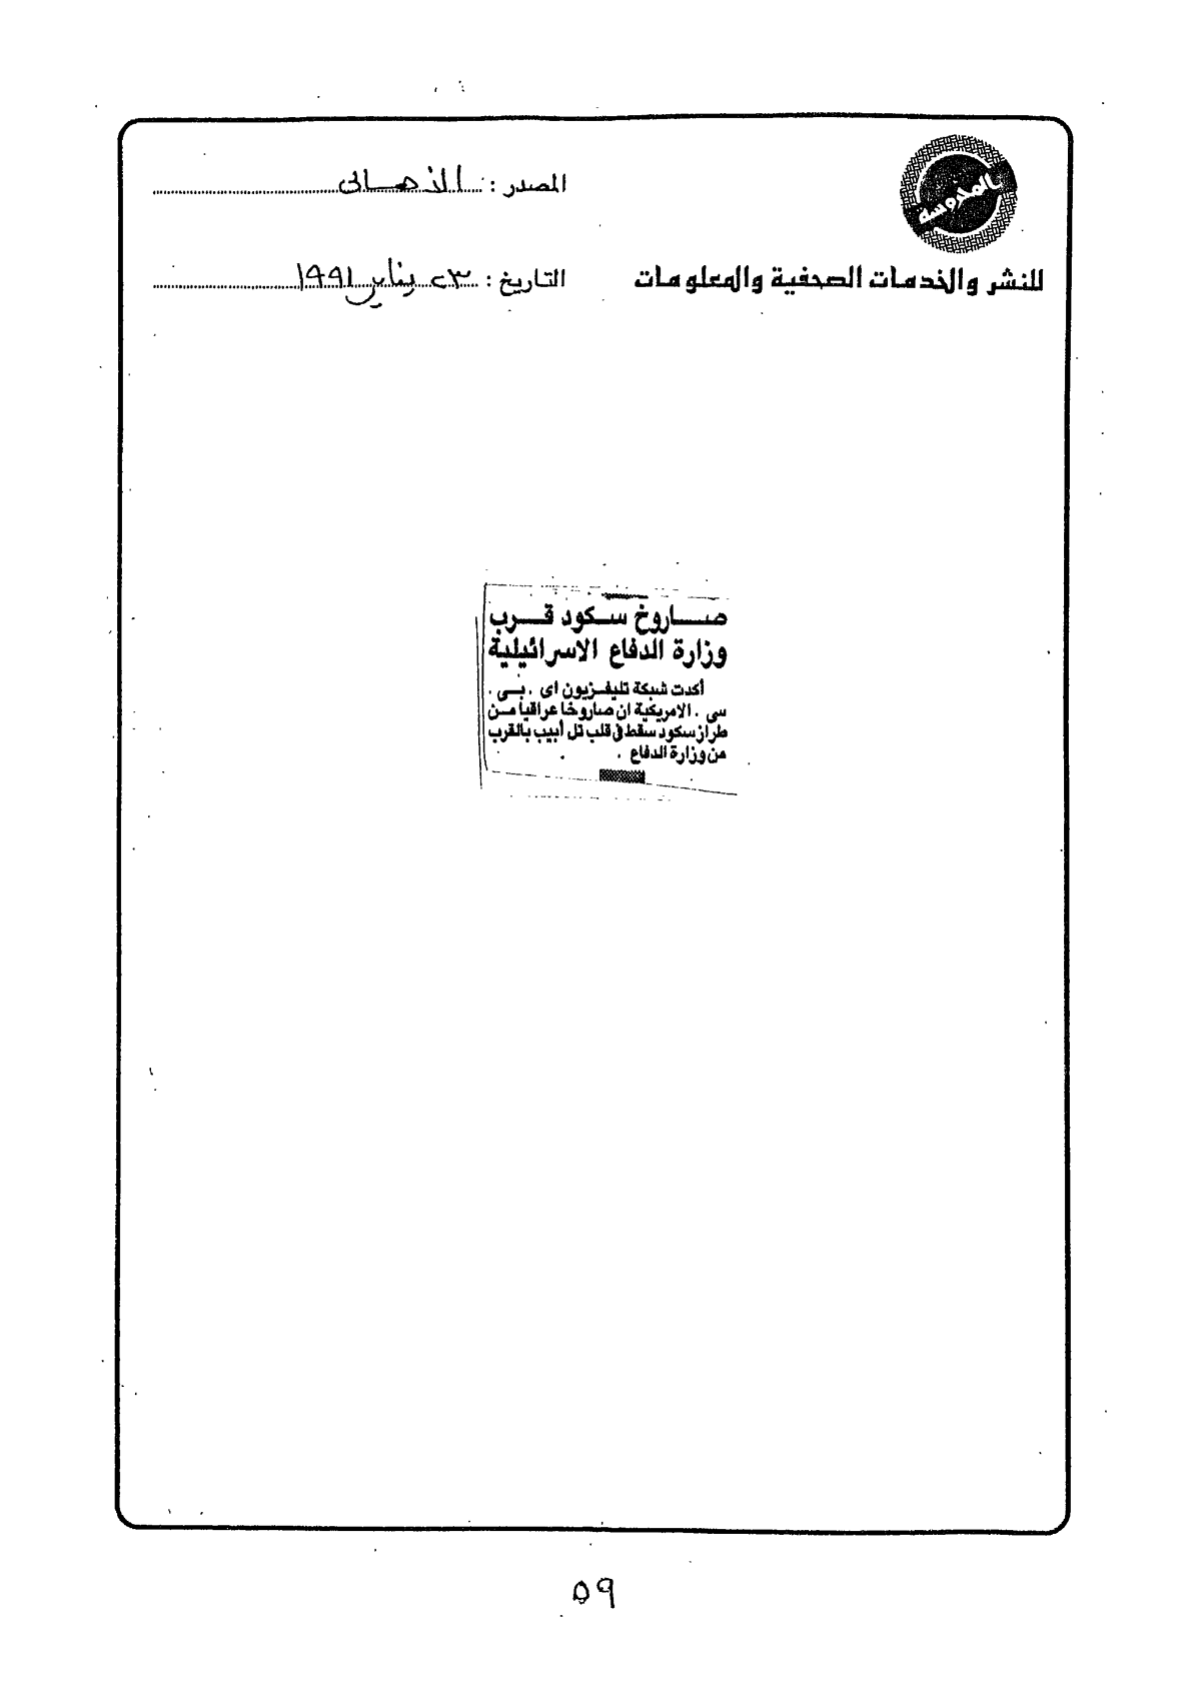 المحروسة
للنشر والخدمات الصحفية والمعلومات
المصدر : الأهالى
التاريخ : ٢٣ يناير ١٩٩١
صاروخ سكود قرب
وزارة الدفاع الاسرائيلية
أكدت شبكة تليفزيون اى . بى .
سى . الامريكية ان صاروخا عراقيا من
طراز سكود سقط فى قلب تل أبيب بالقرب
من وزارة الدفاع .
٥٩